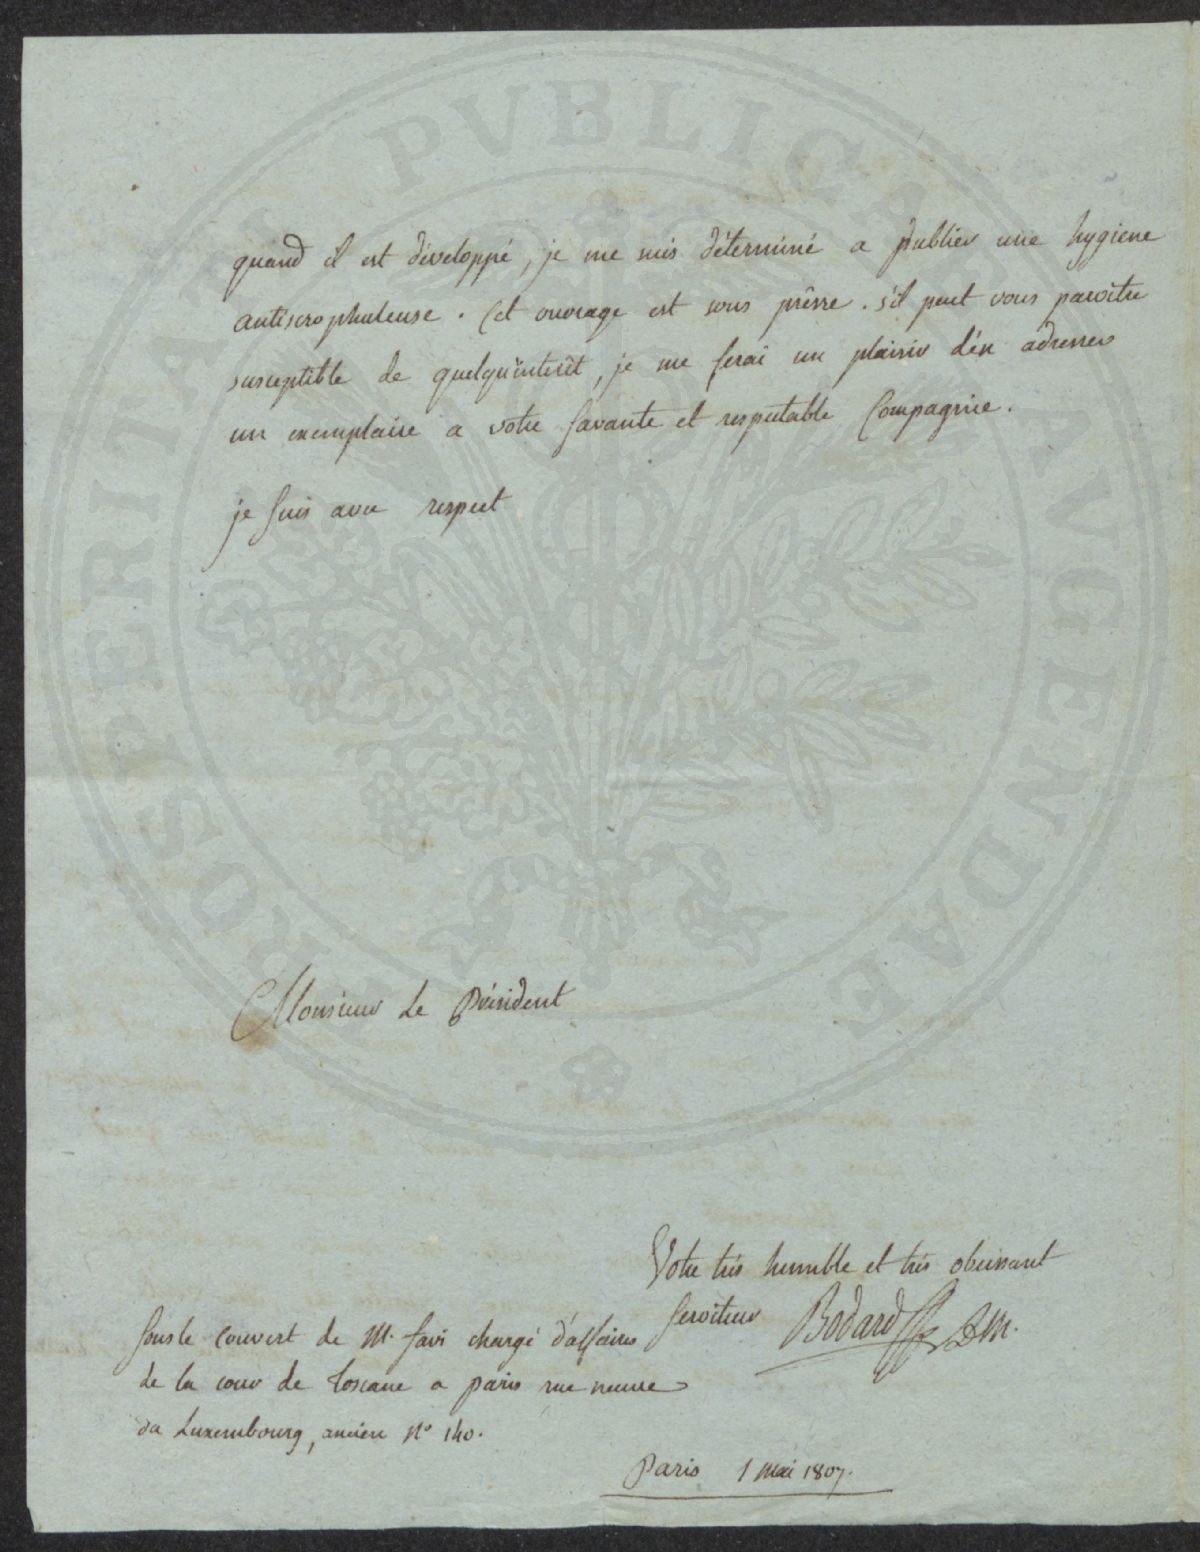 quand il est développé, je me suis déterminé a publier une hygiene
antiscrophuleuse. Cet ouvrage est sous prêsse. s'il peut vous paroitre
susceptible de quelqu'interêt, je me ferai un plaisir d'en adresser
un exemplaire a votre savante et respectable Compagnie.
je suis avec respect
Monsieur Le Président
Votre très humble et très obeissant
serviteur Bodard D.M.
sous le couvert de M. favi chargé d'affaires
de la cour de Toscane a paris rue neuve
du Luxembourg, ancien N° 140.
Paris 1 mai 1807.
PROSPERITATI PVBLICAE AVGENDAE